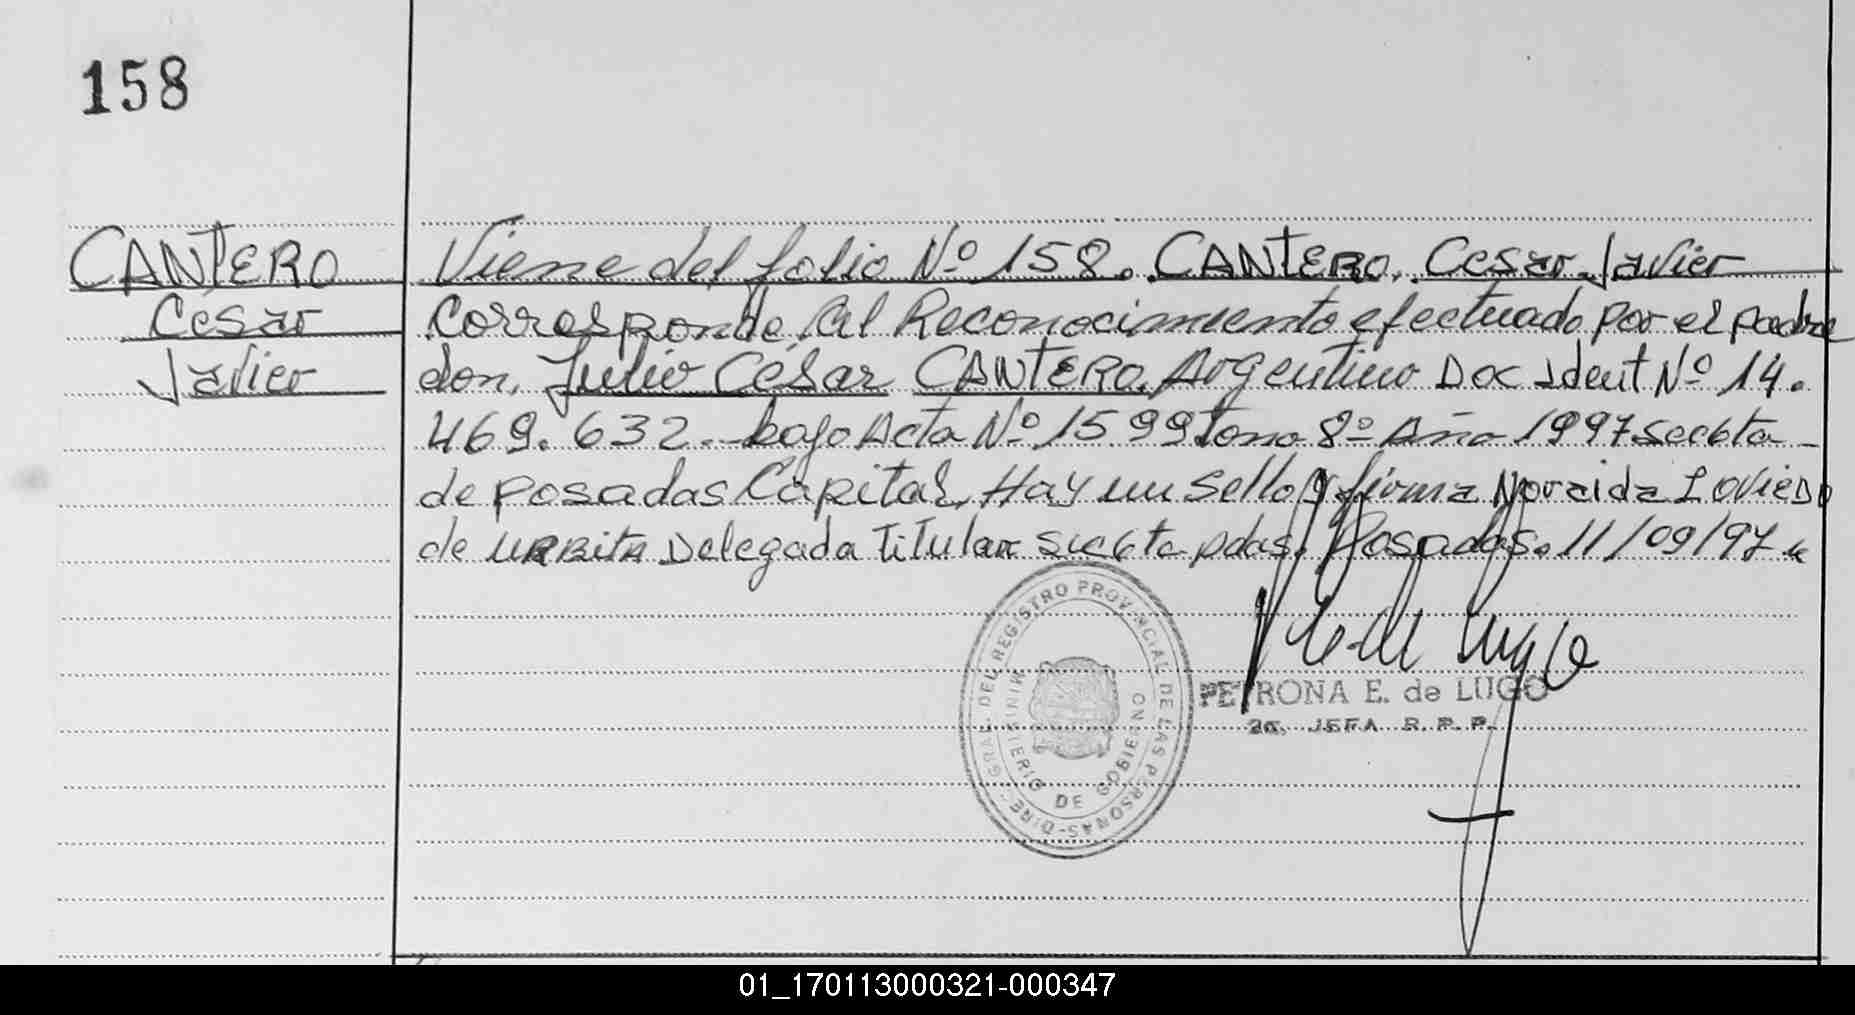 158
CANTERO
César
Javier
Viene del folio Nº 158. CANTERO, Cesar Javier
Corresponde al Reconocimiento efectuado por el padre
don, Julio César CANTERO, Argentino Doc Ident Nº 14.
469.632. bajo Acta Nº 1599 tomo 8º Año 1997 secc 6ta
de Posadas Capital, Hay un sello y firma Noraida L oviedo
de URBITA Delegada Titular secc 6ta pdas. Posadas. 11/09/97
DIRE. GRAL. DEL REGISTRO PROVINCIAL DE LAS PERSONAS
MINISTERIO DE GOBIERNO
PETRONA E. de LUGO
JEFA R. P. P.
01_170113000321-000347